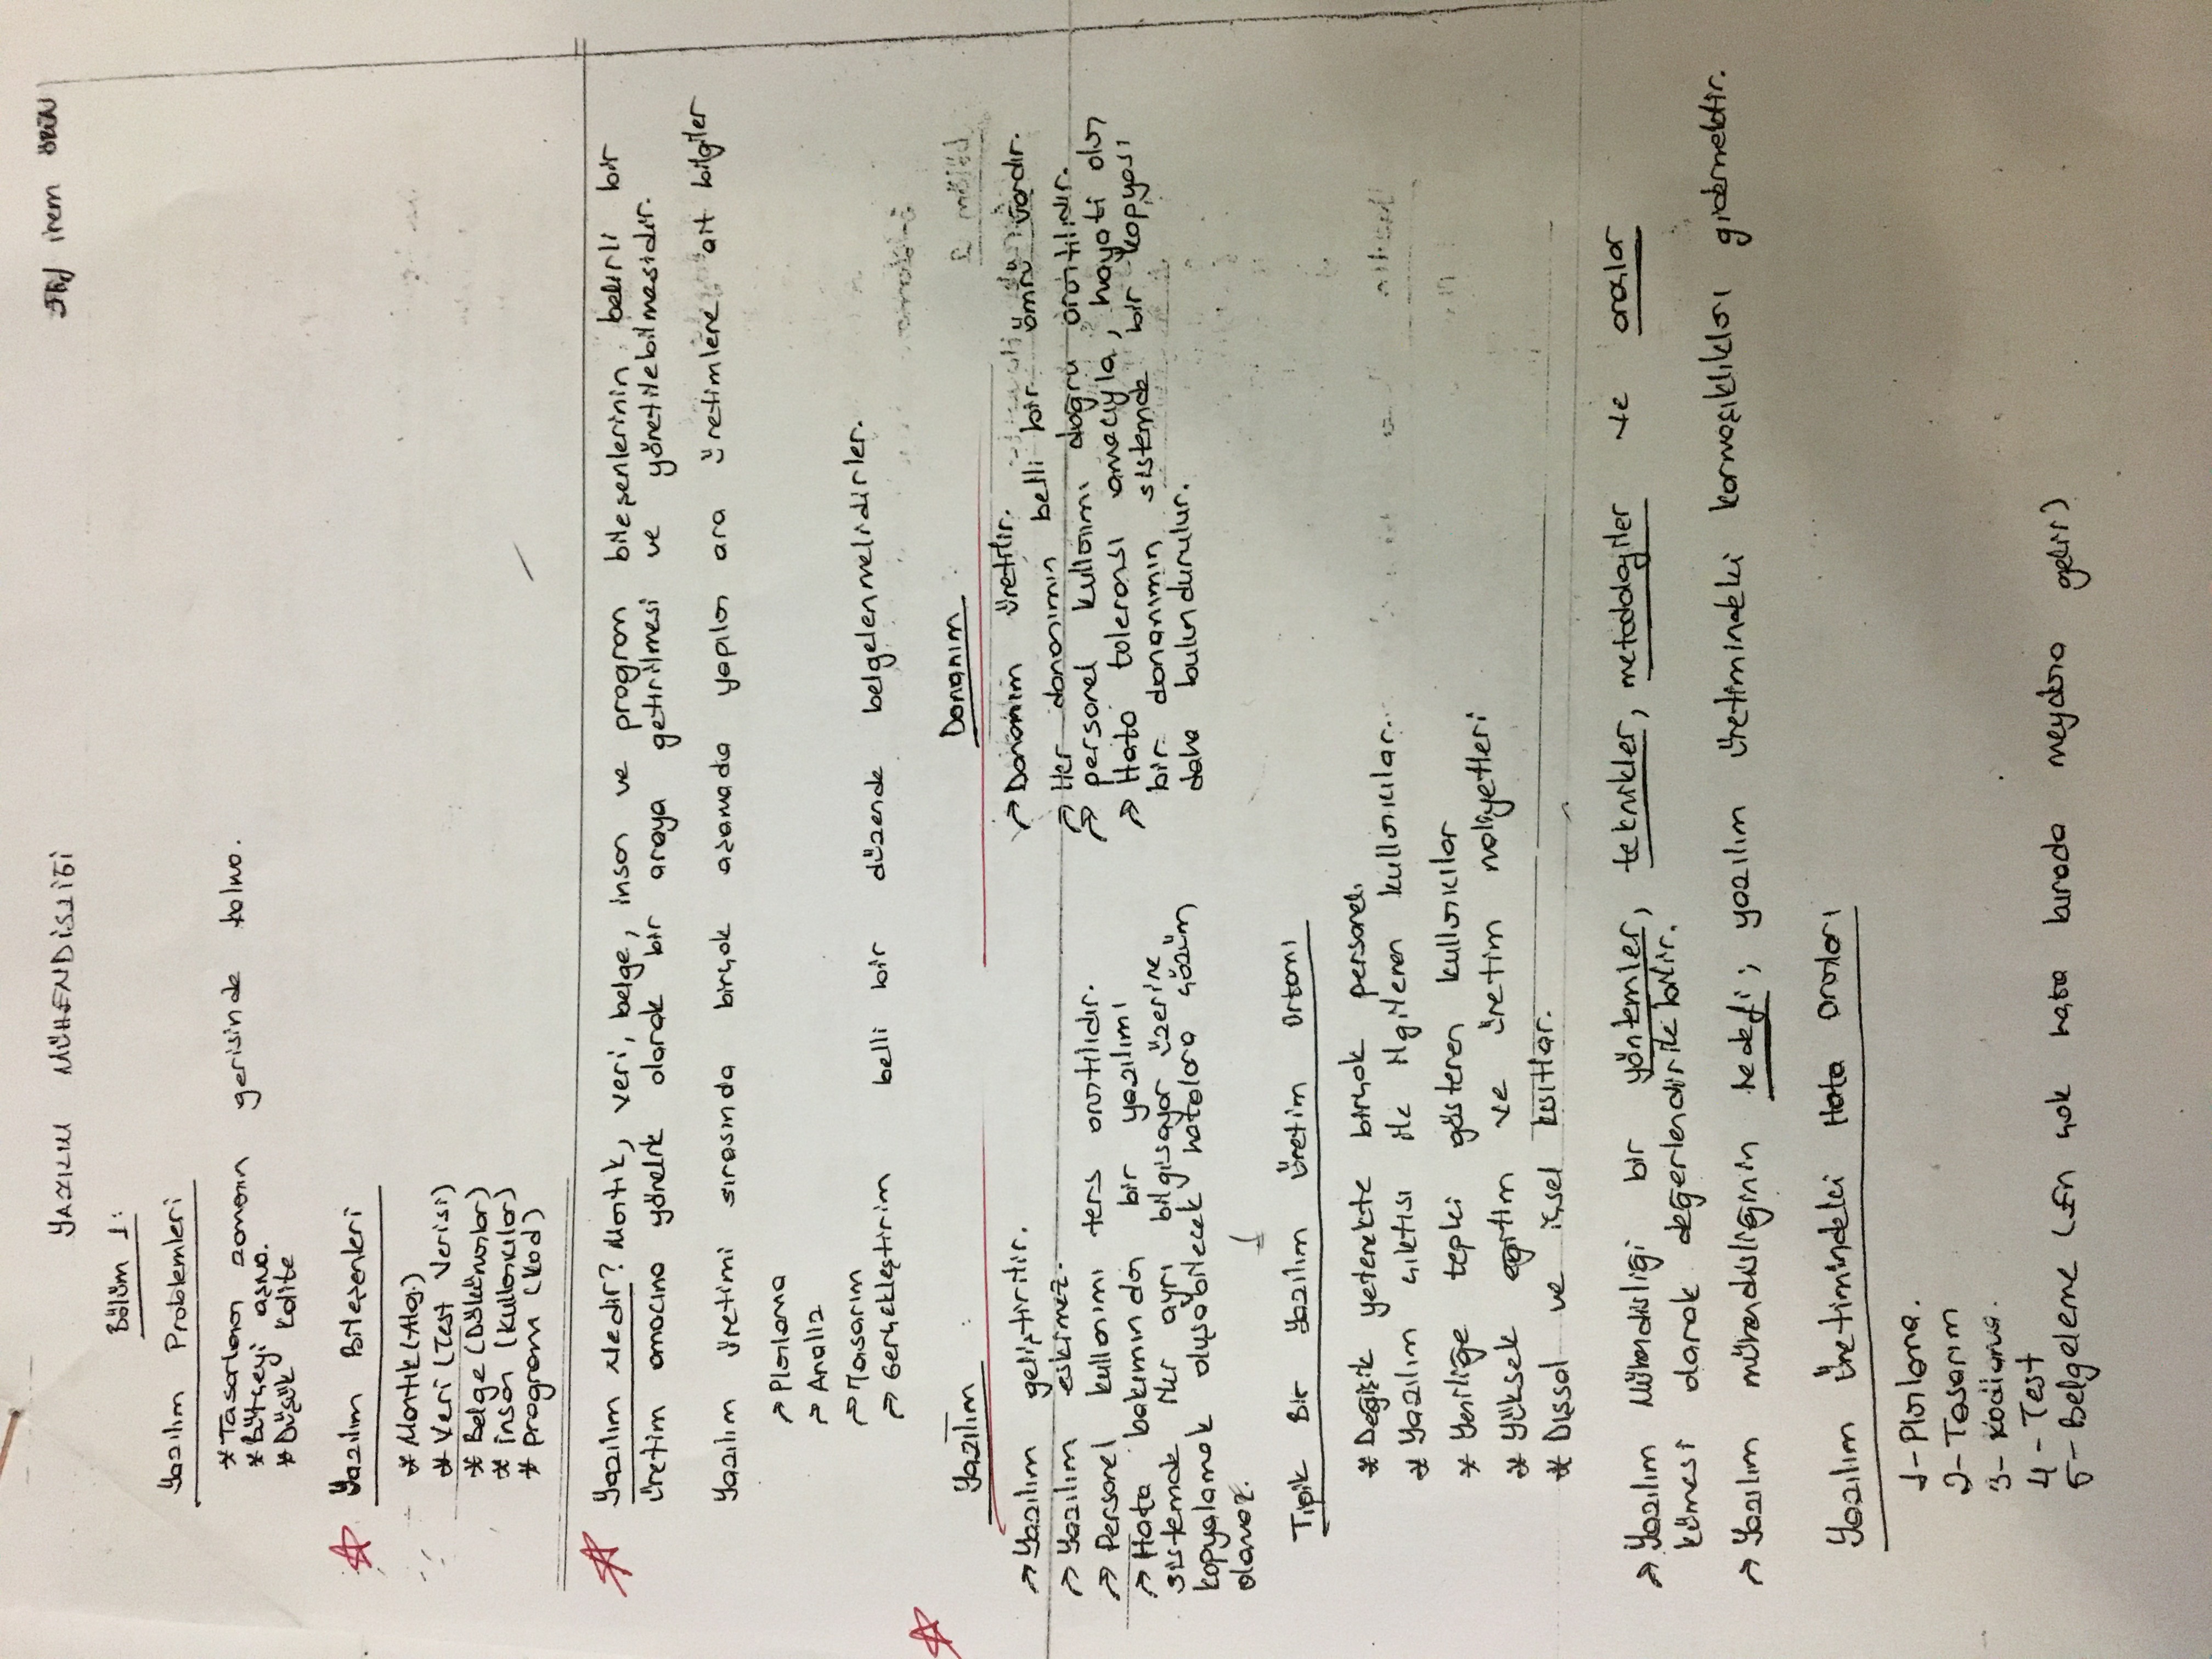 YAZILIM MÜHENDİSLİĞİ
irem
Bölüm 1:
Yazılım Problemleri
* Tasarlanan zamanın gerisinde kalma.
* Bütçeyi aşma.
* Düşük Kalite
Yazılım Bileşenleri
* Mantık (Alg.)
* Veri (Test Verisi)
* Belge (Dökümanlar)
* insan (kullanıcılar)
* program (kod)
Yazılım Nedir? Mantık, veri, belge, insan ve program bileşenlerinin belirli bir
üretim amacına yönelik olarak bir araya getirilmesi ve yönetilebilmesidir.
Yazılım üretimi sırasında birçok aşamada yapılan ara üretimlere ait bilgiler
→ Planlama
→ Analiz
→ Tasarım
→ Gerçekleştirim belli bir düzende belgelenmelidirler.
Yazılım :
→ Yazılım geliştirilir.
→ Yazılım eskimez.
→ Personel kullanımı ters orantılıdır.
→ Hata bakımından bir yazılımı
sistemde iki ayrı bilgisayar üzerine
kopyalamak oluşabilecek hatalara çözüm
olamaz.
Donanım :
→ Donanım üretilir.
→ Her donanımın belli bir ömrü vardır.
→ personel kullanımı doğru orantılıdır.
→ Hata toleransı amacıyla, hayati olan
bir donanımın sistemde bir kopyası
daha bulundurulur.
Tipik Bir Yazılım Üretim Ortamı
* Değişik yetenekte birçok personel.
* Yazılım çıktısı ile ilgilenen kullanıcılar.
* Yeniliğe tepki gösteren kullanıcılar
* Yüksek eğitim ve üretim maliyetleri
* Dışsal ve içsel kısıtlar.
→ Yazılım Mühendisliği bir yöntemler, teknikler, metodolojiler ve araçlar
kümesi olarak değerlendirilebilir.
→ Yazılım mühendisliğinin hedefi; yazılım üretimindeki karmaşıklıkları gidermektir.
Yazılım Üretimindeki Hata Oranları
1- Planlama.
2- Tasarım
3- Kodlama.
4- Test
5- Belgeleme (En çok hata burada meydana gelir)